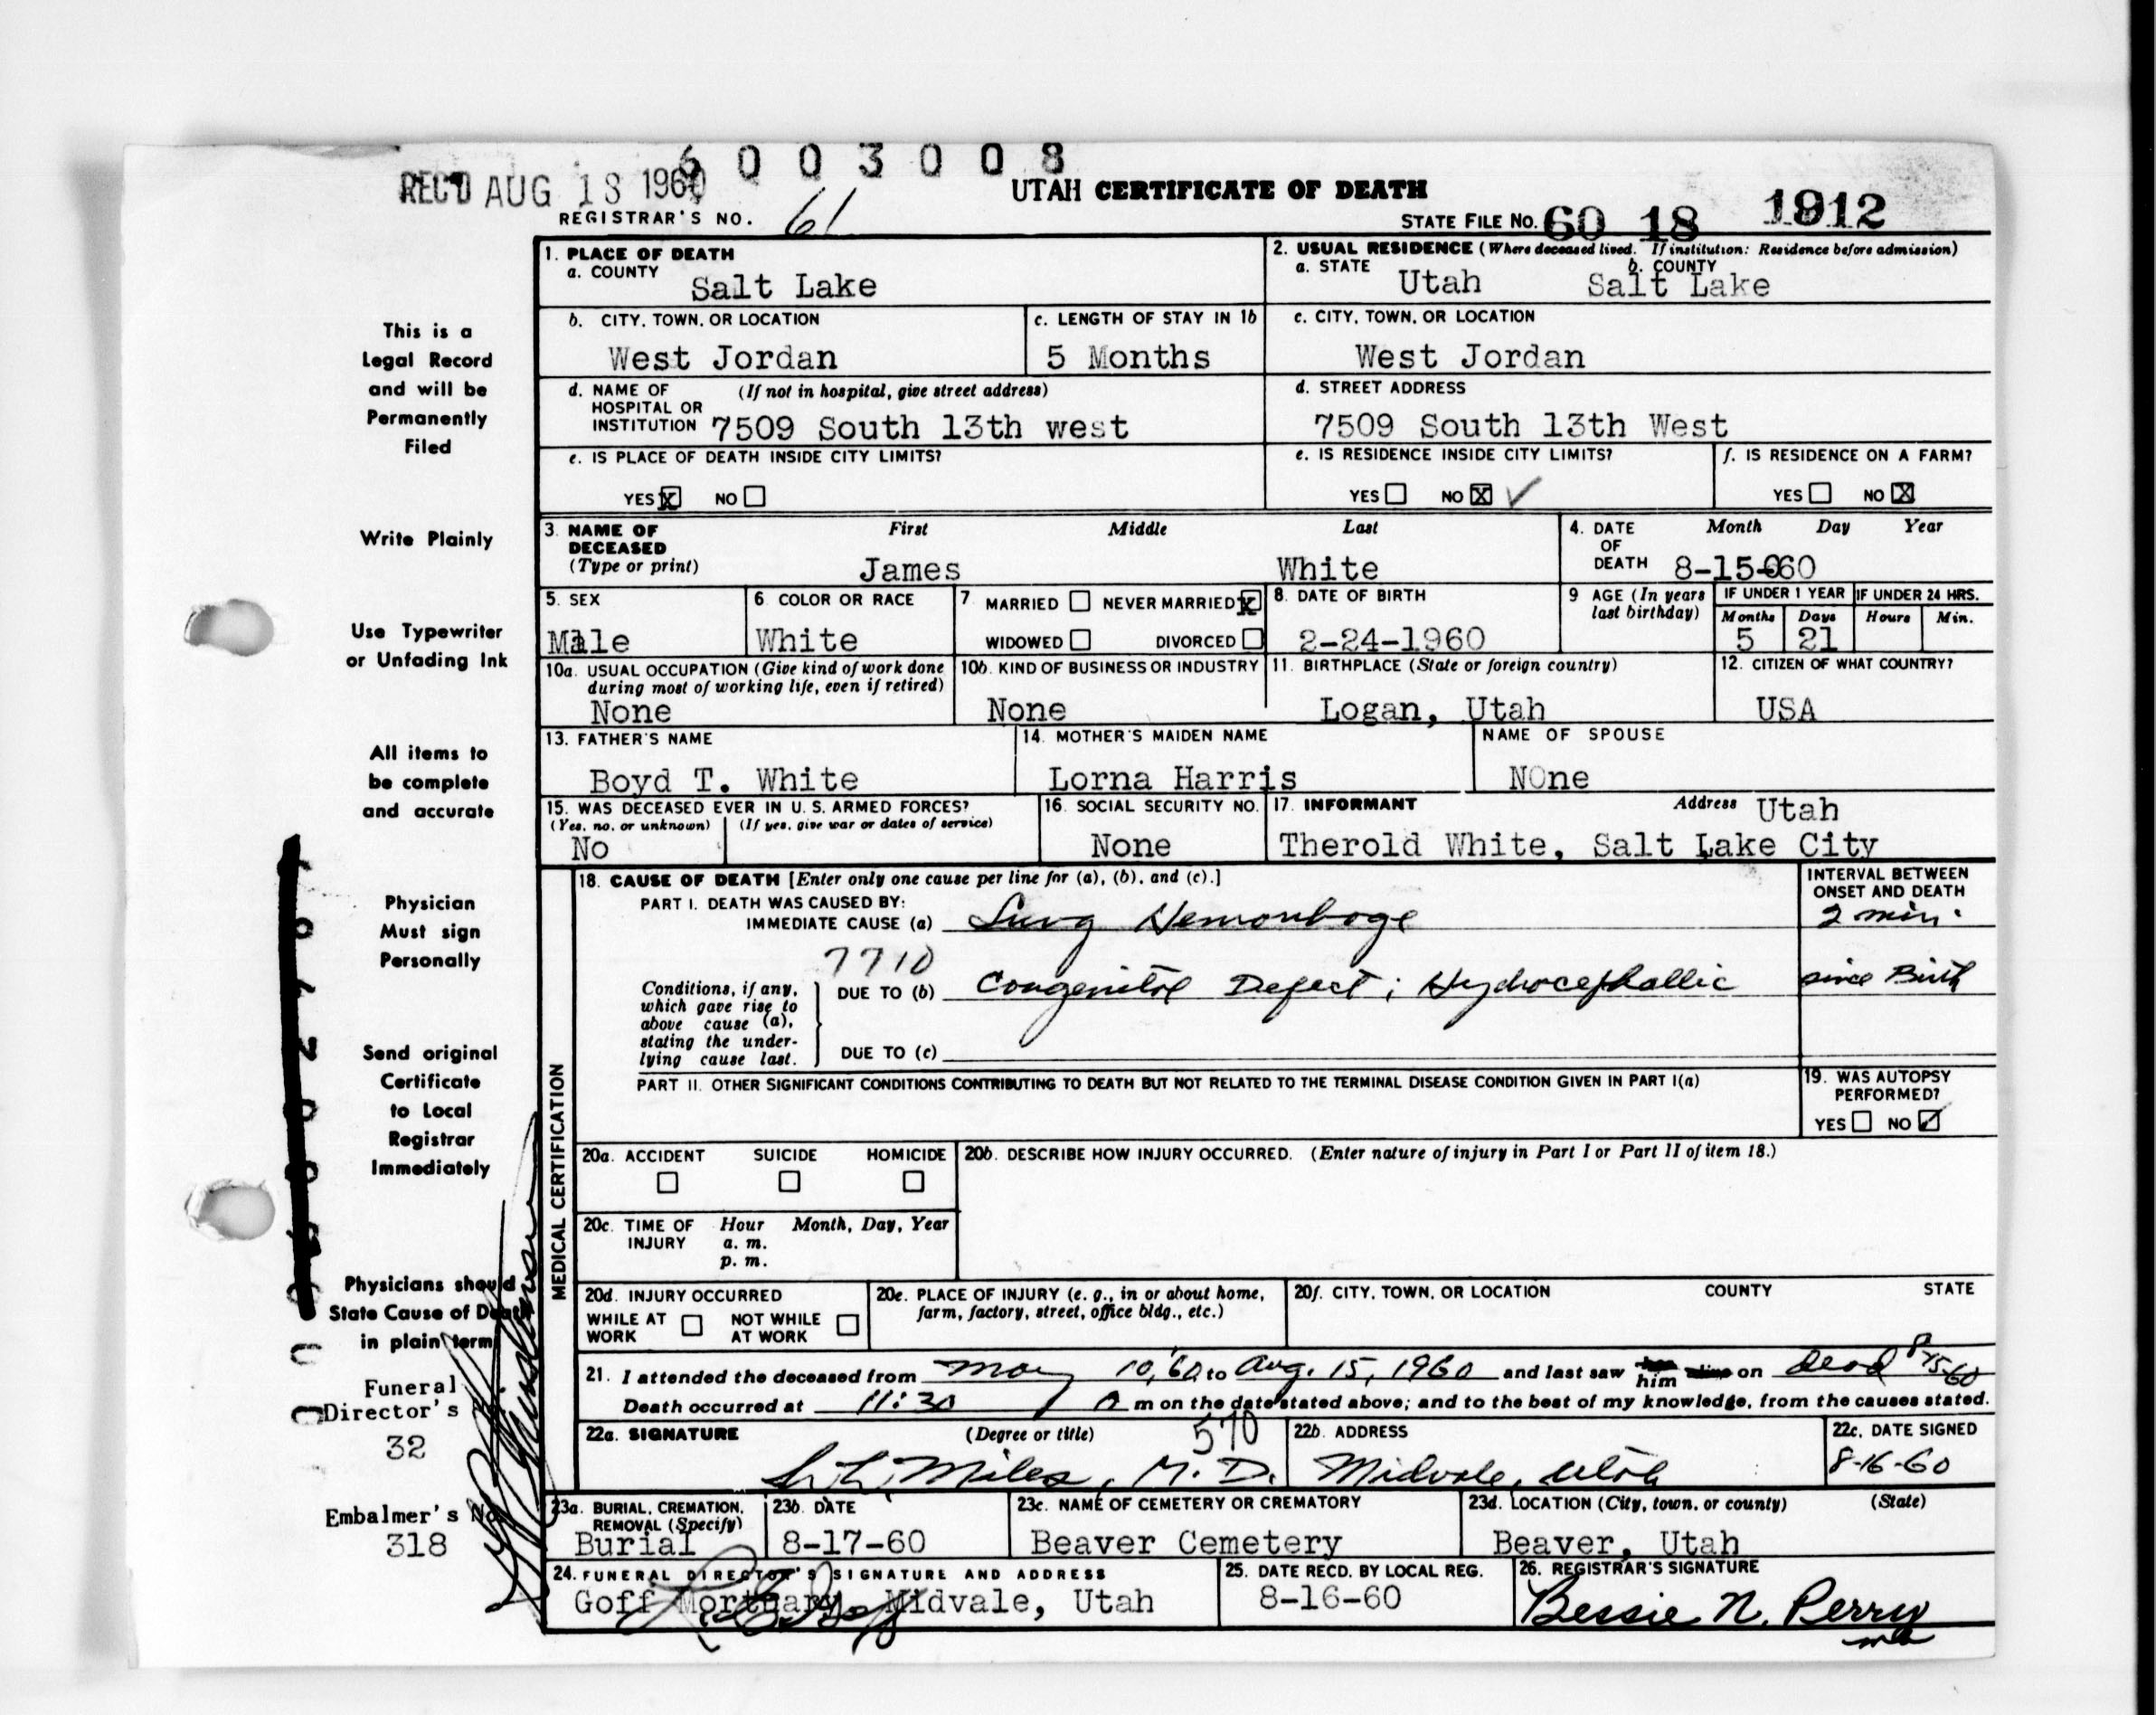 6003008
REC'D AUG 18 1960
UTAH CERTIFICATE OF DEATH
REGISTRAR'S NO. 61
STATE FILE NO. 60 18 1912
This is a
Legal Record
and will be
Permanently
Filed
Write Plainly
Use Typewriter
or Unfading Ink
All items to
be complete
and accurate
Physician
Must sign
Personally
Send original
Certificate
to Local
Registrar
Immediately
Physicians should
State Cause of Death
in plain terms
Funeral
Director's
32
Embalmer's No.
318
1. PLACE OF DEATH
a. COUNTY Salt Lake
2. USUAL RESIDENCE (Where deceased lived. If institution: Residence before admission)
a. STATE Utah b. COUNTY Salt Lake
b. CITY, TOWN, OR LOCATION West Jordan
c. LENGTH OF STAY IN 1b 5 Months
c. CITY, TOWN, OR LOCATION West Jordan
d. NAME OF (If not in hospital, give street address)
HOSPITAL OR
INSTITUTION 7509 South 13th west
d. STREET ADDRESS
7509 South 13th West
e. IS PLACE OF DEATH INSIDE CITY LIMITS?
YES X NO
e. IS RESIDENCE INSIDE CITY LIMITS?
YES NO X ✓
f. IS RESIDENCE ON A FARM?
YES NO X
3. NAME OF DECEASED (Type or print) First Middle Last
James White
4. DATE OF DEATH Month Day Year
8-15-60
5. SEX Male
6. COLOR OR RACE White
7. MARRIED NEVER MARRIED X
WIDOWED DIVORCED
8. DATE OF BIRTH 2-24-1960
9 AGE (In years last birthday)
IF UNDER 1 YEAR IF UNDER 24 HRS.
Months Days Hours Min.
5 21
10a. USUAL OCCUPATION (Give kind of work done during most of working life, even if retired)
None
10b. KIND OF BUSINESS OR INDUSTRY
None
11. BIRTHPLACE (State or foreign country)
Logan, Utah
12. CITIZEN OF WHAT COUNTRY?
USA
13. FATHER'S NAME
Boyd T. White
14. MOTHER'S MAIDEN NAME
Lorna Harris
NAME OF SPOUSE
NOne
15. WAS DECEASED EVER IN U. S. ARMED FORCES?
(Yes, no, or unknown) (If yes, give war or dates of service)
No
16. SOCIAL SECURITY NO.
None
17. INFORMANT Address Utah
Therold White, Salt Lake City
MEDICAL CERTIFICATION
18. CAUSE OF DEATH [Enter only one cause per line for (a), (b), and (c).]
INTERVAL BETWEEN ONSET AND DEATH
PART I. DEATH WAS CAUSED BY:
IMMEDIATE CAUSE (a) Lung Hemorrhage 2 min.
7710
Conditions, if any, which gave rise to above cause (a), stating the underlying cause last.
DUE TO (b) Congenital Defect; Hydrocephallic since Birth
DUE TO (c)
PART II. OTHER SIGNIFICANT CONDITIONS CONTRIBUTING TO DEATH BUT NOT RELATED TO THE TERMINAL DISEASE CONDITION GIVEN IN PART I(a)
19. WAS AUTOPSY PERFORMED?
YES NO ✓
20a. ACCIDENT SUICIDE HOMICIDE
20b. DESCRIBE HOW INJURY OCCURRED. (Enter nature of injury in Part I or Part II of item 18.)
20c. TIME OF INJURY Hour Month, Day, Year
a. m.
p. m.
20d. INJURY OCCURRED
WHILE AT WORK NOT WHILE AT WORK
20e. PLACE OF INJURY (e. g., in or about home, farm, factory, street, office bldg., etc.)
20f. CITY, TOWN, OR LOCATION COUNTY STATE
21. I attended the deceased from May 10, '60 to Aug. 15, 1960 and last saw him on dead 8-15-60
Death occurred at 11:30 A m on the date stated above; and to the best of my knowledge, from the causes stated.
22a. SIGNATURE (Degree or title) 570
Miles, M. D.
22b. ADDRESS
Midvale, Utah
22c. DATE SIGNED
8-16-60
23a. BURIAL, CREMATION, REMOVAL (Specify)
Burial
23b. DATE
8-17-60
23c. NAME OF CEMETERY OR CREMATORY
Beaver Cemetery
23d. LOCATION (City, town, or county) (State)
Beaver, Utah
24. FUNERAL DIRECTOR'S SIGNATURE AND ADDRESS
Goff Mortuary, Midvale, Utah
25. DATE RECD. BY LOCAL REG.
8-16-60
26. REGISTRAR'S SIGNATURE
Bessie N. Perry